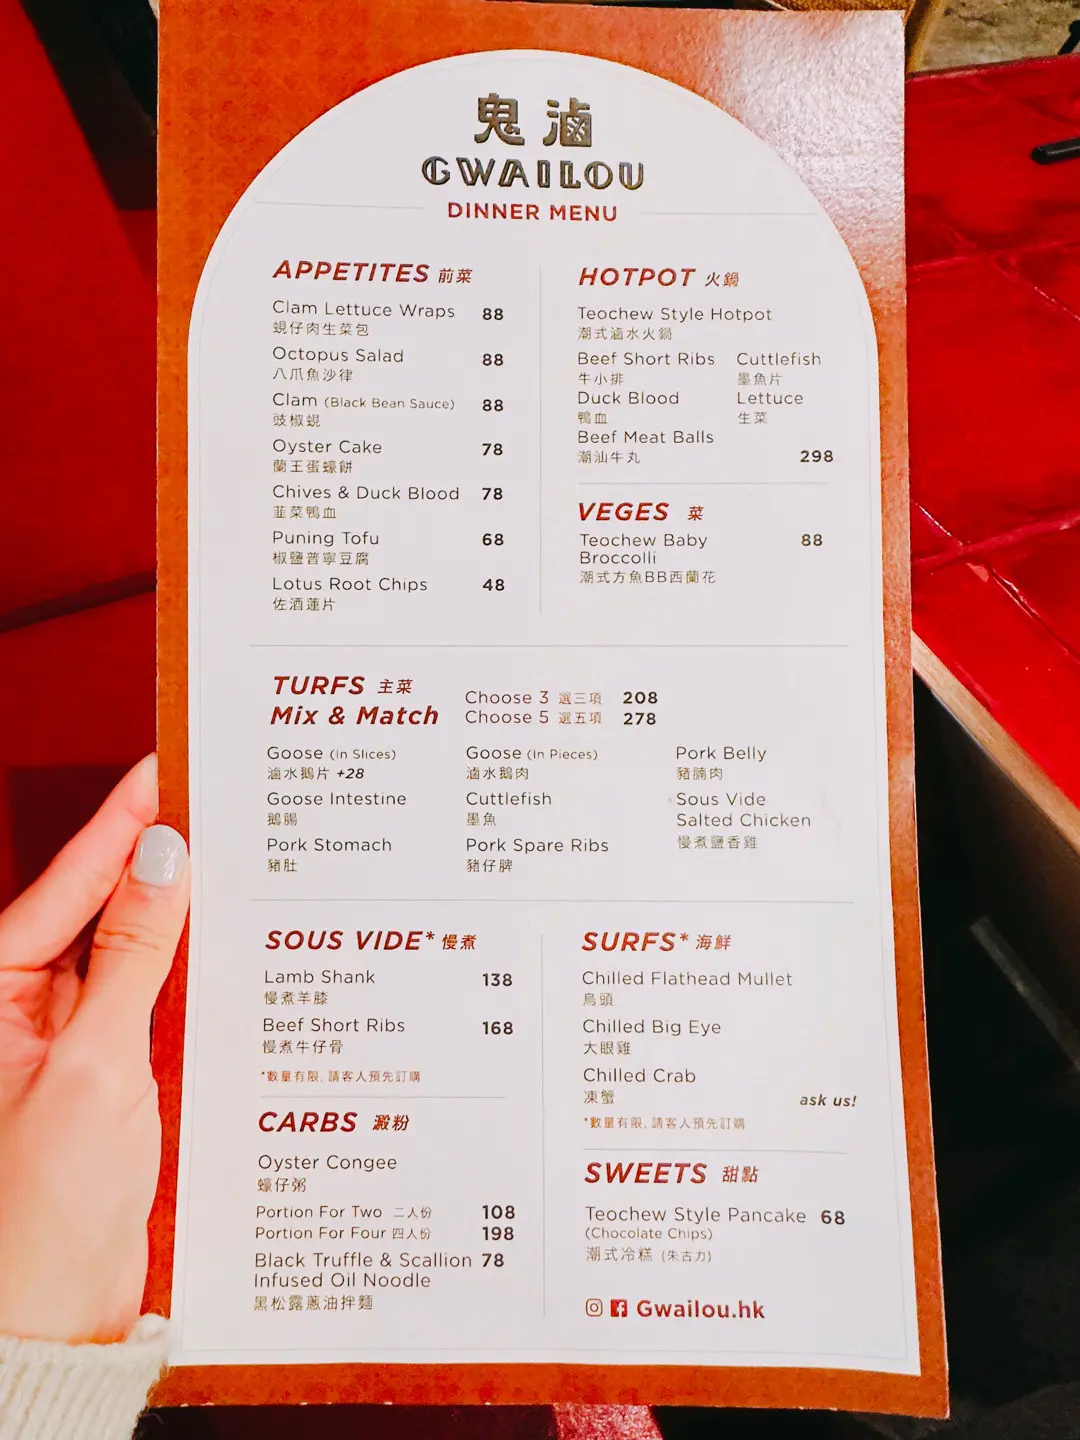 鬼滷
GWAILOU
DINNER MENU
APPETITES 前菜
Clam Lettuce Wraps 88
蜆仔肉生菜包
Octopus Salad 88
八爪魚沙律
Clam (Black Bean Sauce) 88
豉椒蜆
Oyster Cake 78
蘭王蛋蠔餅
Chives & Duck Blood 78
韮菜鴨血
Puning Tofu 68
椒鹽普寧豆腐
Lotus Root Chips 48
佐酒蓮片
HOTPOT 火鍋
Teochew Style Hotpot
潮式滷水火鍋
Beef Short Ribs Cuttlefish
牛小排 墨魚片
Duck Blood Lettuce
鴨血 生菜
Beef Meat Balls
潮汕牛丸 298
VEGES 菜
Teochew Baby 88
Broccolli
潮式方魚BB西蘭花
TURFS 主菜
Mix & Match
Choose 3 選三項 208
Choose 5 選五項 278
Goose (In Slices) Goose (In Pieces) Pork Belly
滷水鵝片 +28 滷水鵝肉 豬腩肉
Goose Intestine Cuttlefish Sous Vide
鵝腸 墨魚 Salted Chicken
Pork Stomach Pork Spare Ribs 慢煮鹽香雞
豬肚 豬仔脾
SOUS VIDE* 慢煮
Lamb Shank 138
慢煮羊膝
Beef Short Ribs 168
慢煮牛仔骨
*數量有限, 請客人預先訂購
CARBS 澱粉
Oyster Congee
蠔仔粥
Portion For Two 二人份 108
Portion For Four 四人份 198
Black Truffle & Scallion 78
Infused Oil Noodle
黑松露蔥油拌麵
SURFS* 海鮮
Chilled Flathead Mullet
烏頭
Chilled Big Eye
大眼雞
Chilled Crab
凍蟹 ask us!
*數量有限, 請客人預先訂購
SWEETS 甜點
Teochew Style Pancake 68
(Chocolate Chips)
潮式冷糕 (朱古力)
Gwailou.hk